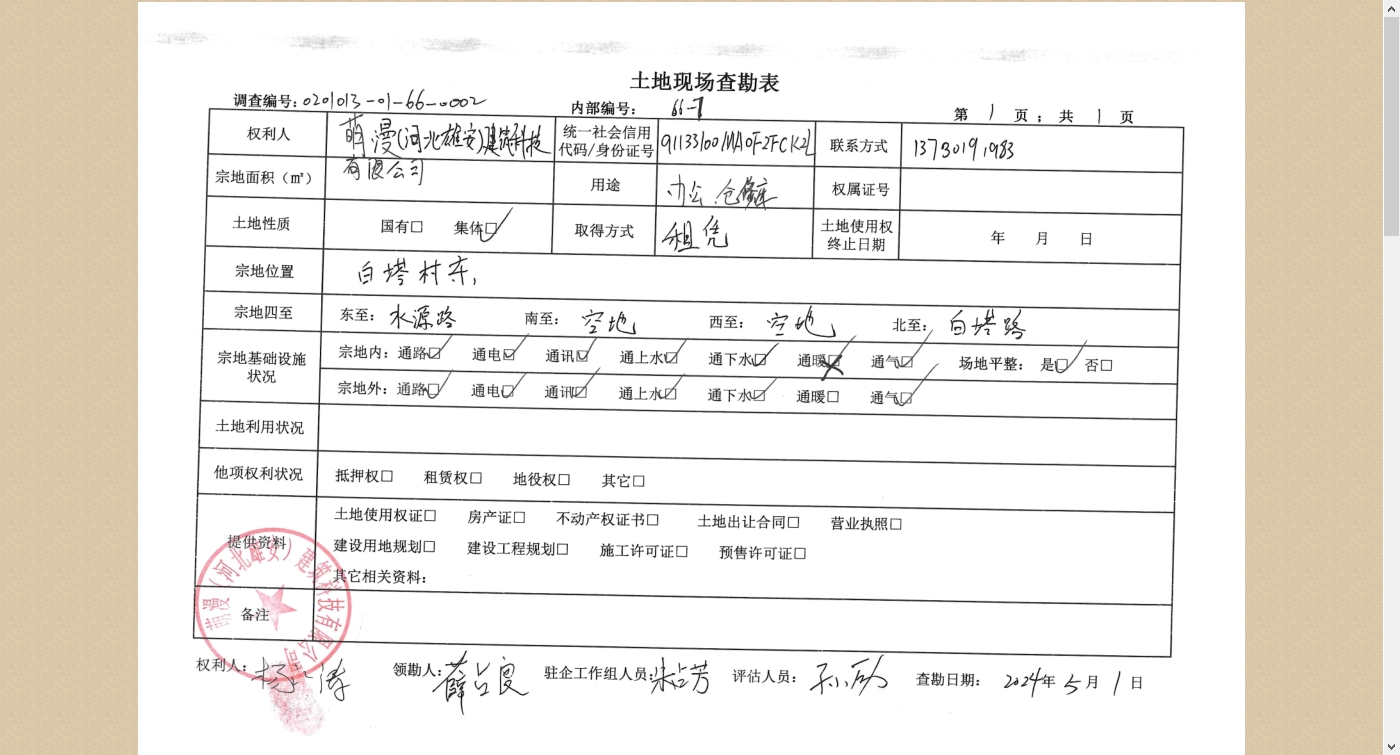 土地现场查勘表
调查编号:0201013-01-66-0002 内部编号: 66-1 第 1 页 ; 共 1 页
权利人 萌漫(河北雄安)建筑科技有限公司 统一社会信用代码/身份证号 91133100MA0F2FCK2L 联系方式 13730191983
宗地面积（㎡） 用途 办公 仓库 权属证号
土地性质 国有□ 集体☑ 取得方式 租凭 土地使用权终止日期 年 月 日
宗地位置 白塔村东,
宗地四至 东至: 水源路 南至: 空地 西至: 空地 北至: 白塔路
宗地基础设施状况 宗地内: 通路☑ 通电☑ 通讯☑ 通上水☑ 通下水☑ 通暖☒ 通气☑ 场地平整: 是☑ 否□
宗地外: 通路☑ 通电☑ 通讯☑ 通上水☑ 通下水☑ 通暖□ 通气☑
土地利用状况
他项权利状况 抵押权□ 租赁权□ 地役权□ 其它□
提供资料 土地使用权证□ 房产证□ 不动产权证书□ 土地出让合同□ 营业执照□
建设用地规划□ 建设工程规划□ 施工许可证□ 预售许可证□
其它相关资料:
备注
萌漫（河北雄安）建筑科技有限公司
权利人: 杨 涛 领勘人: 薛占良 驻企工作组人员: 朱占芳 评估人员: 查勘日期: 2024年 5月 1日